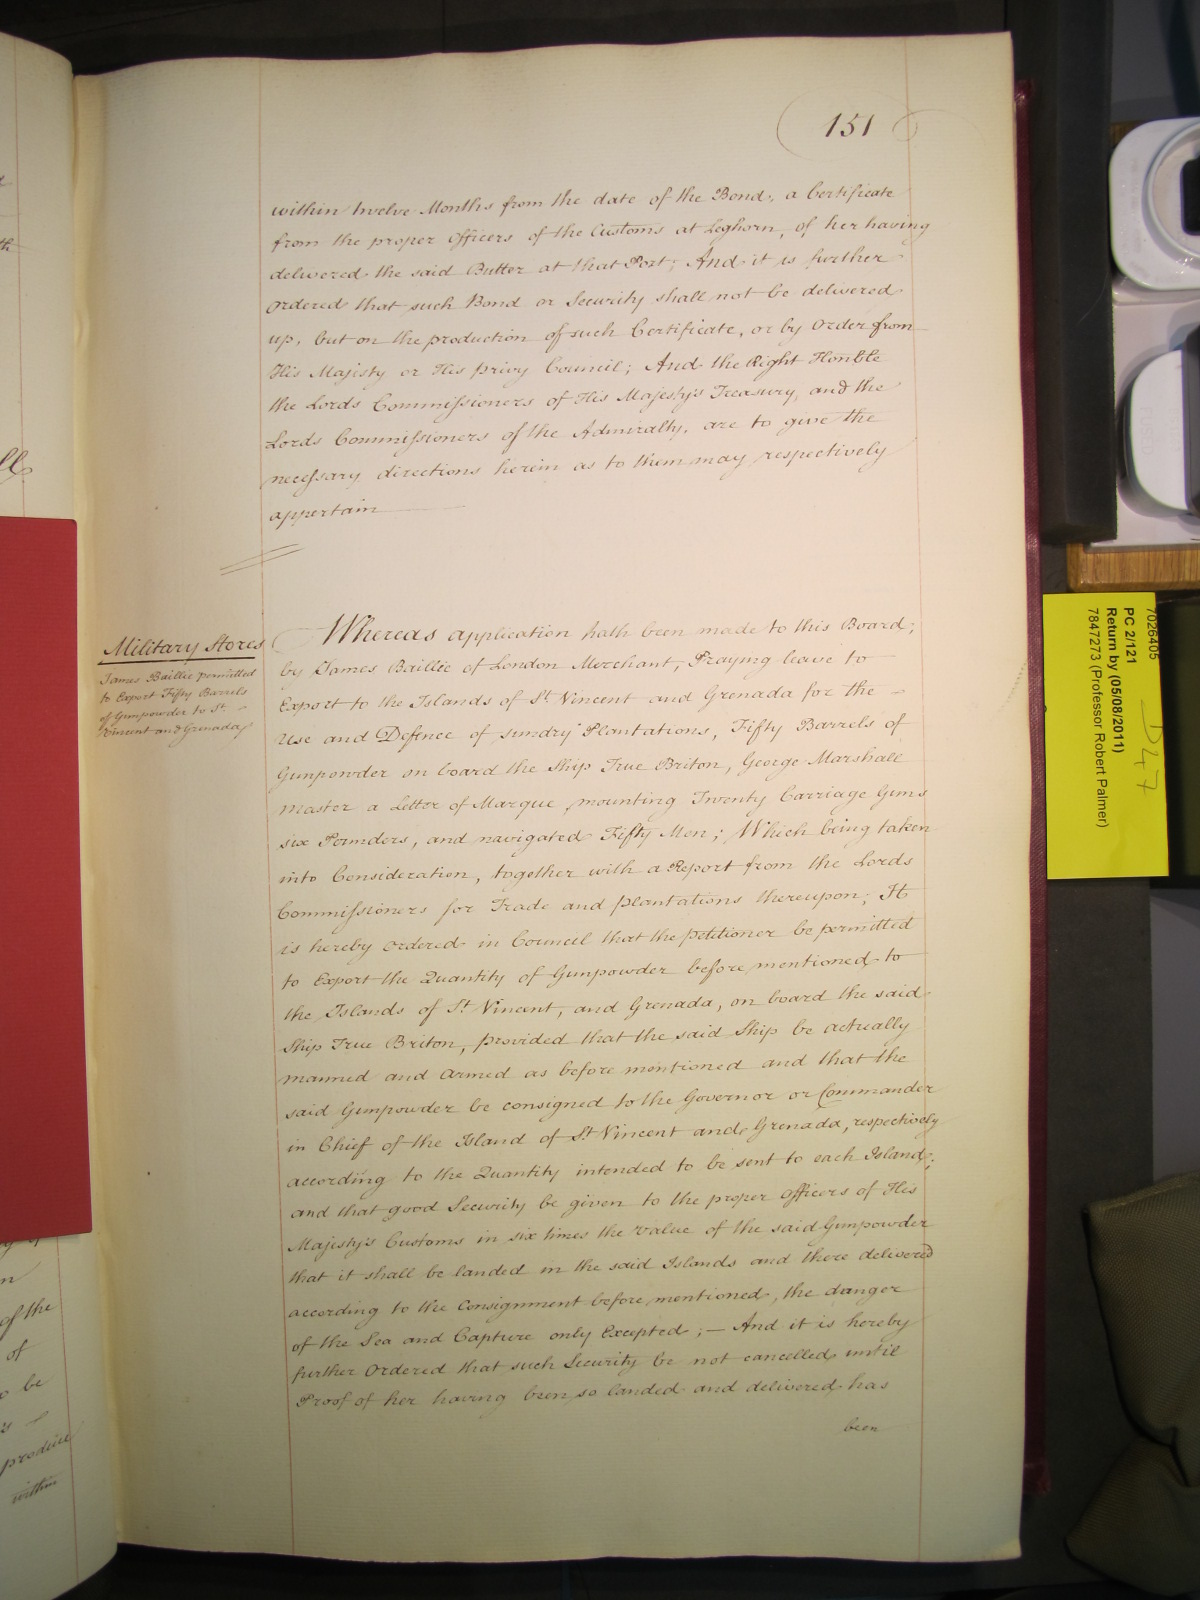 151
within twelve Months from the date of the Bond, a Certificate
from the proper Officers of the Customs at Leghorn, of her having
delivered the said Butter at that Port; And it is further
Ordered that such Bond or Security shall not be delivered
up, but on the production of such Certificate, or by Order from
His Majesty or His privy Council; And the Right Honble
the Lords Commissioners of His Majesty's Treasury, and the
Lords Commissioners of the Admiralty, are to give the
necessary directions herein as to them may respectively
appertain
Military Stores
James Baillie permitted
to Export Fifty Barrels
of Gunpowder to St.
Vincent and Grenada
Whereas application hath been made to this Board;
by James Baillie of London Merchant, Praying leave to
Export to the Islands of St Vincent and Grenada for the
Use and Defence of sundry Plantations, Fifty Barrels of
Gunpowder on board the Ship True Briton, George Marshall
Master a Letter of Marque, mounting Twenty Carriage Guns
six Pounders, and navigated Fifty Men; Which being taken
into Consideration, together with a Report from the Lords
Commissioners for Trade and Plantations thereupon; It
is hereby Ordered in Council that the petitioner be permitted
to Export the Quantity of Gunpowder before mentioned to
the Islands of St Vincent, and Grenada, on board the said
Ship True Briton, provided that the said Ship be actually
manned and Armed as before mentioned and that the
said Gunpowder be consigned to the Governor or Commander
in Chief of the Island of St Vincent and Grenada, respectively
according to the Quantity intended to be sent to each Island;
and that good Security be given to the proper Officers of His
Majesty's Customs in six times the value of the said Gunpowder
that it shall be landed in the said Islands and there delivered
according to the Consignment before mentioned, the danger
of the Sea and Capture only Excepted; — And it is hereby
further Ordered that such Security be not cancelled until
Proof of her having been so landed and delivered has
been
of the
of
be
produce
within
7026405
PC 2/121
Return by (05/08/2011)
7847273 (Professor Robert Palmer)
D47